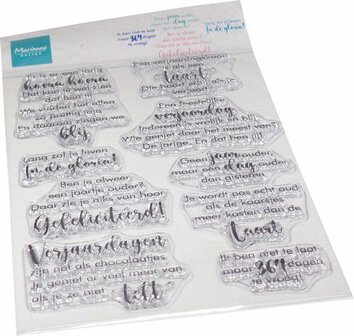 Marianne
DESIGN
Ik ben niet te laat
maar 364 dagen
te vroeg!
jaar
dag
Lang zal je leven
In de gloria!
Gefeliciteerd!
Er is er een jarig
hoera hoera
Dat kun je wel zien
dat ben jij
We vinden het allen
zo prettig ja ja
En daarom zingen we
blij
Lang zal je leven
In de gloria!
Ben je alweer
een jaartje ouder?
Daar zie je niks van hoor
Gefeliciteerd!
Verjaardagen
zijn net als chocolaatjes
Je geniet er veel meer van
als je ze niet
telt
Een verjaardagsfeest
is als een
taart
Die hoort bij jou
Een feestelijke
verjaardag
Iedereen
Wie
De jarige. En dat ben jij!
Geen jaar ouder
maar een dag ouder
dan gisteren
Je wordt pas echt oud
als de kaarsjes
meer kosten dan de
taart
Ik ben niet te laat
maar 364 dagen
te vroeg!